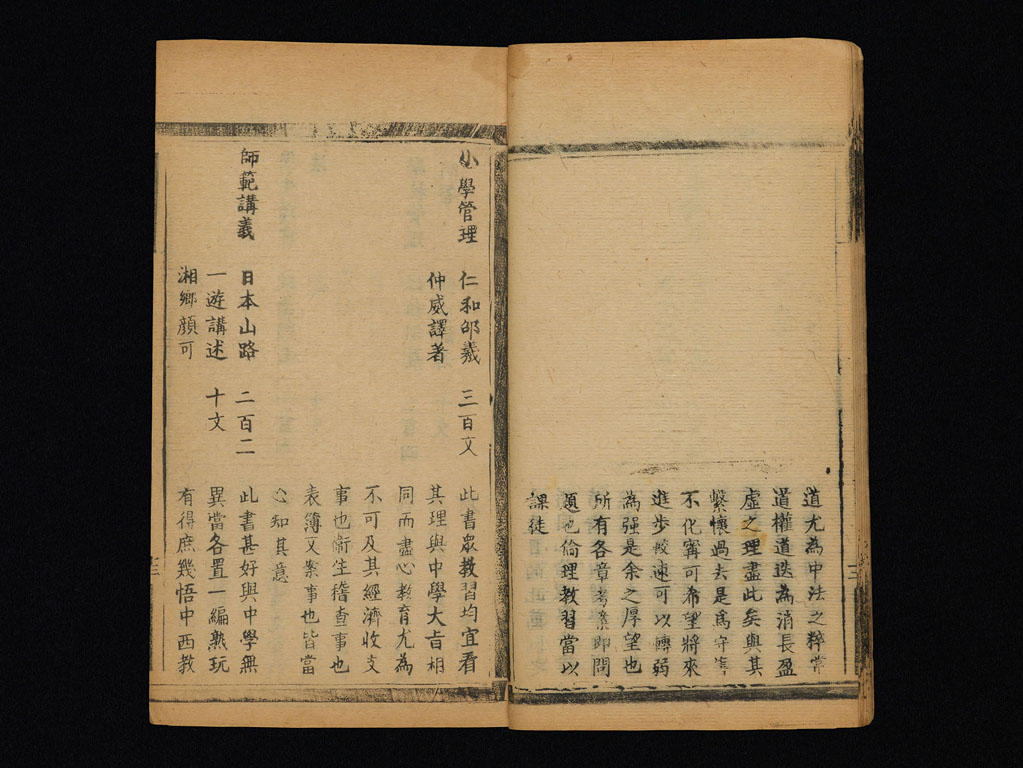 道尤為中法之粹常
道權道迭為消長盈
虛之理盡此矣與其
繫懷過去是為守舊
不化寧可希望將來
進步較速可以轉弱
為强是余之厚望也
所有各章考業即問
題也倫理教習當以
課徒
小學管理 仁和邵羲 三百文 此書眾教習均宜看
仲威譯著 其理與中學大旨相
同而盡心教育尤為
不可及其經濟收支
事也衛生稽查事也
表簿文案事也皆當
心知其意
師範講義 日本山路 二百二 此書甚好與中學無
一遊講述 十文 異當各置一編熟玩
湘鄉顏可 有得庶幾悟中西教
十三